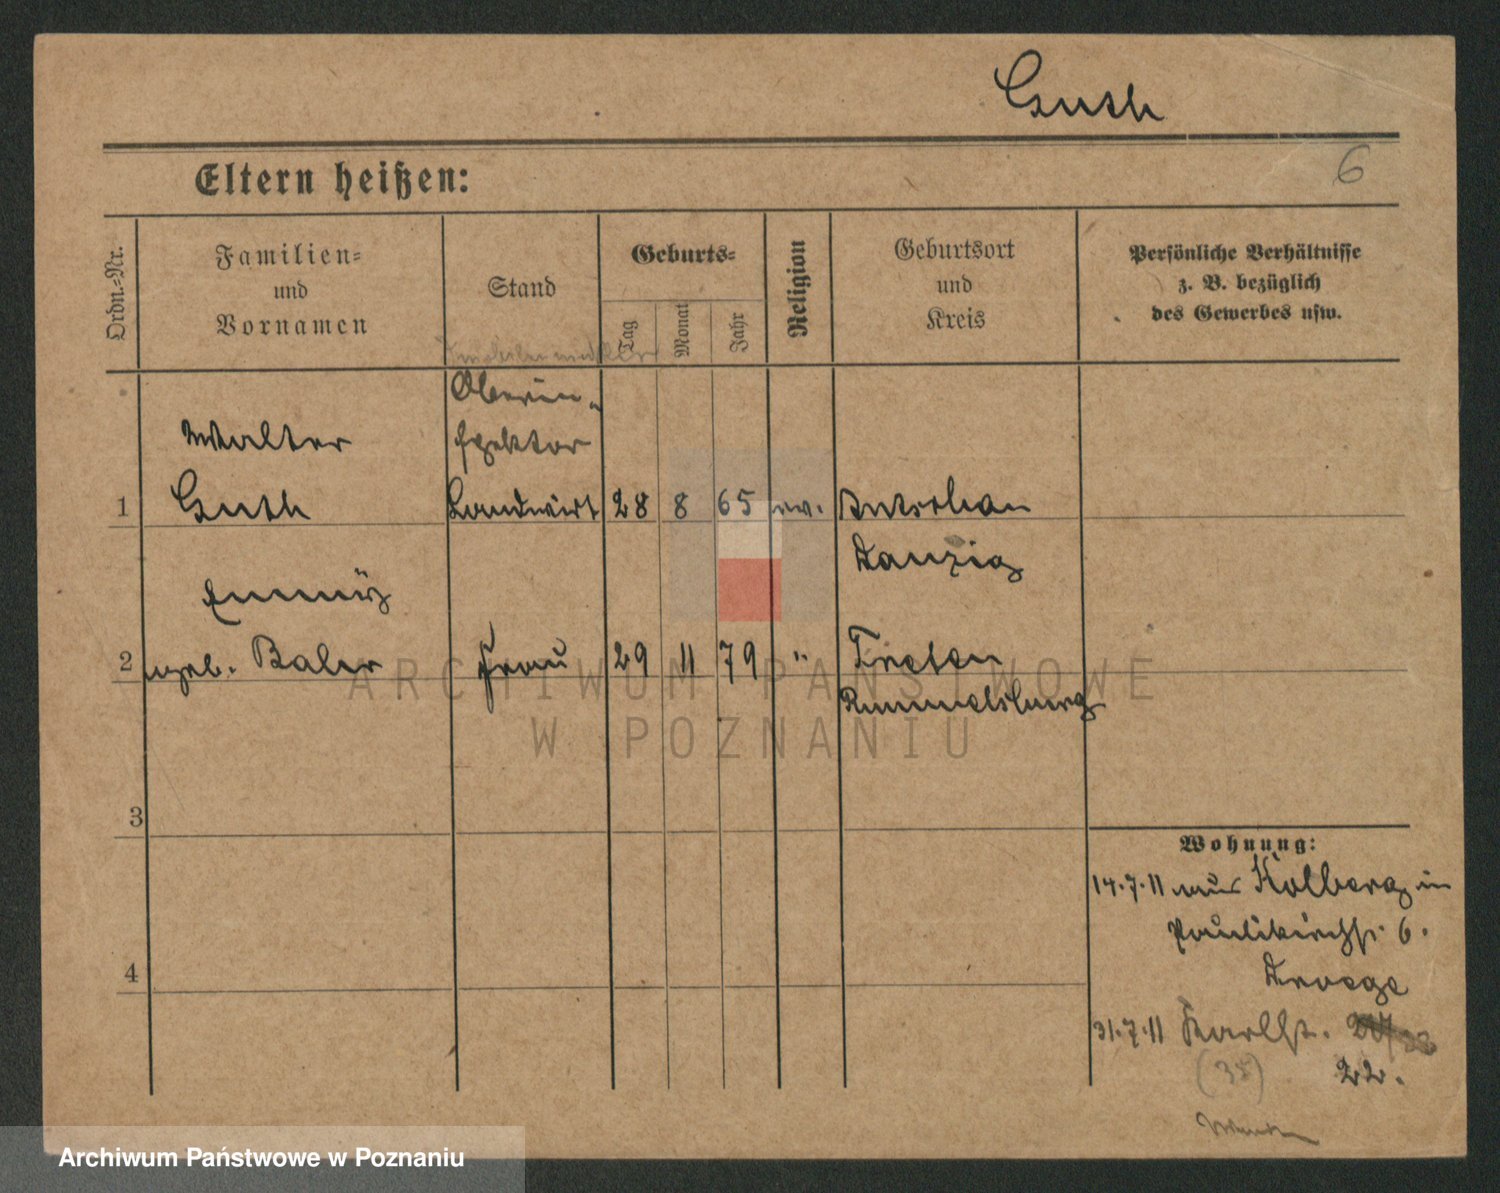 Guth
6
Eltern heißen:
Ordn.-Nr.
Familien-
und
Vornamen
Stand
Geburts-
Tag
Monat
Jahr
Religion
Geburtsort
und
Kreis
Persönliche Verhältnisse
z. B. bezüglich
des Gewerbes usw.
Oberin-
spektor
Walter
1 Guth Landwirt 28 8 65 ev.
Danzig
2 geb. Frau 29 11 79 " Treten
Rummelsburg
ARCHIWUM PAŃSTWOWE
W POZNANIU
3
Wohnung:
14.7.11 aus Kolberg in
Paulikirchstr. 6.
Droege
4
31.7.11 Karlst.
22.
Archiwum Państwowe w Poznaniu